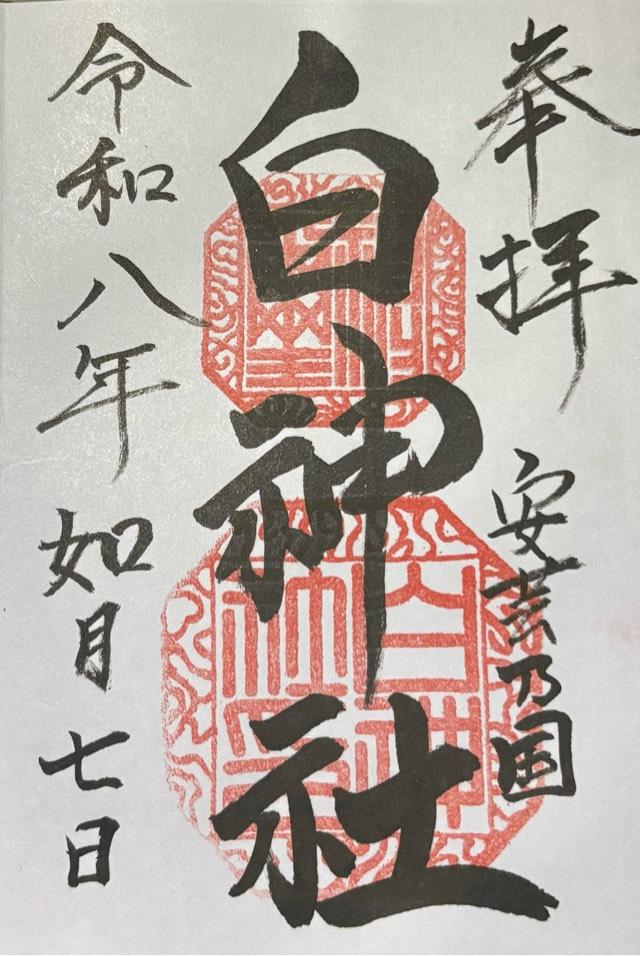 奉拝
安芸乃国
白神社
令和八年如月七日